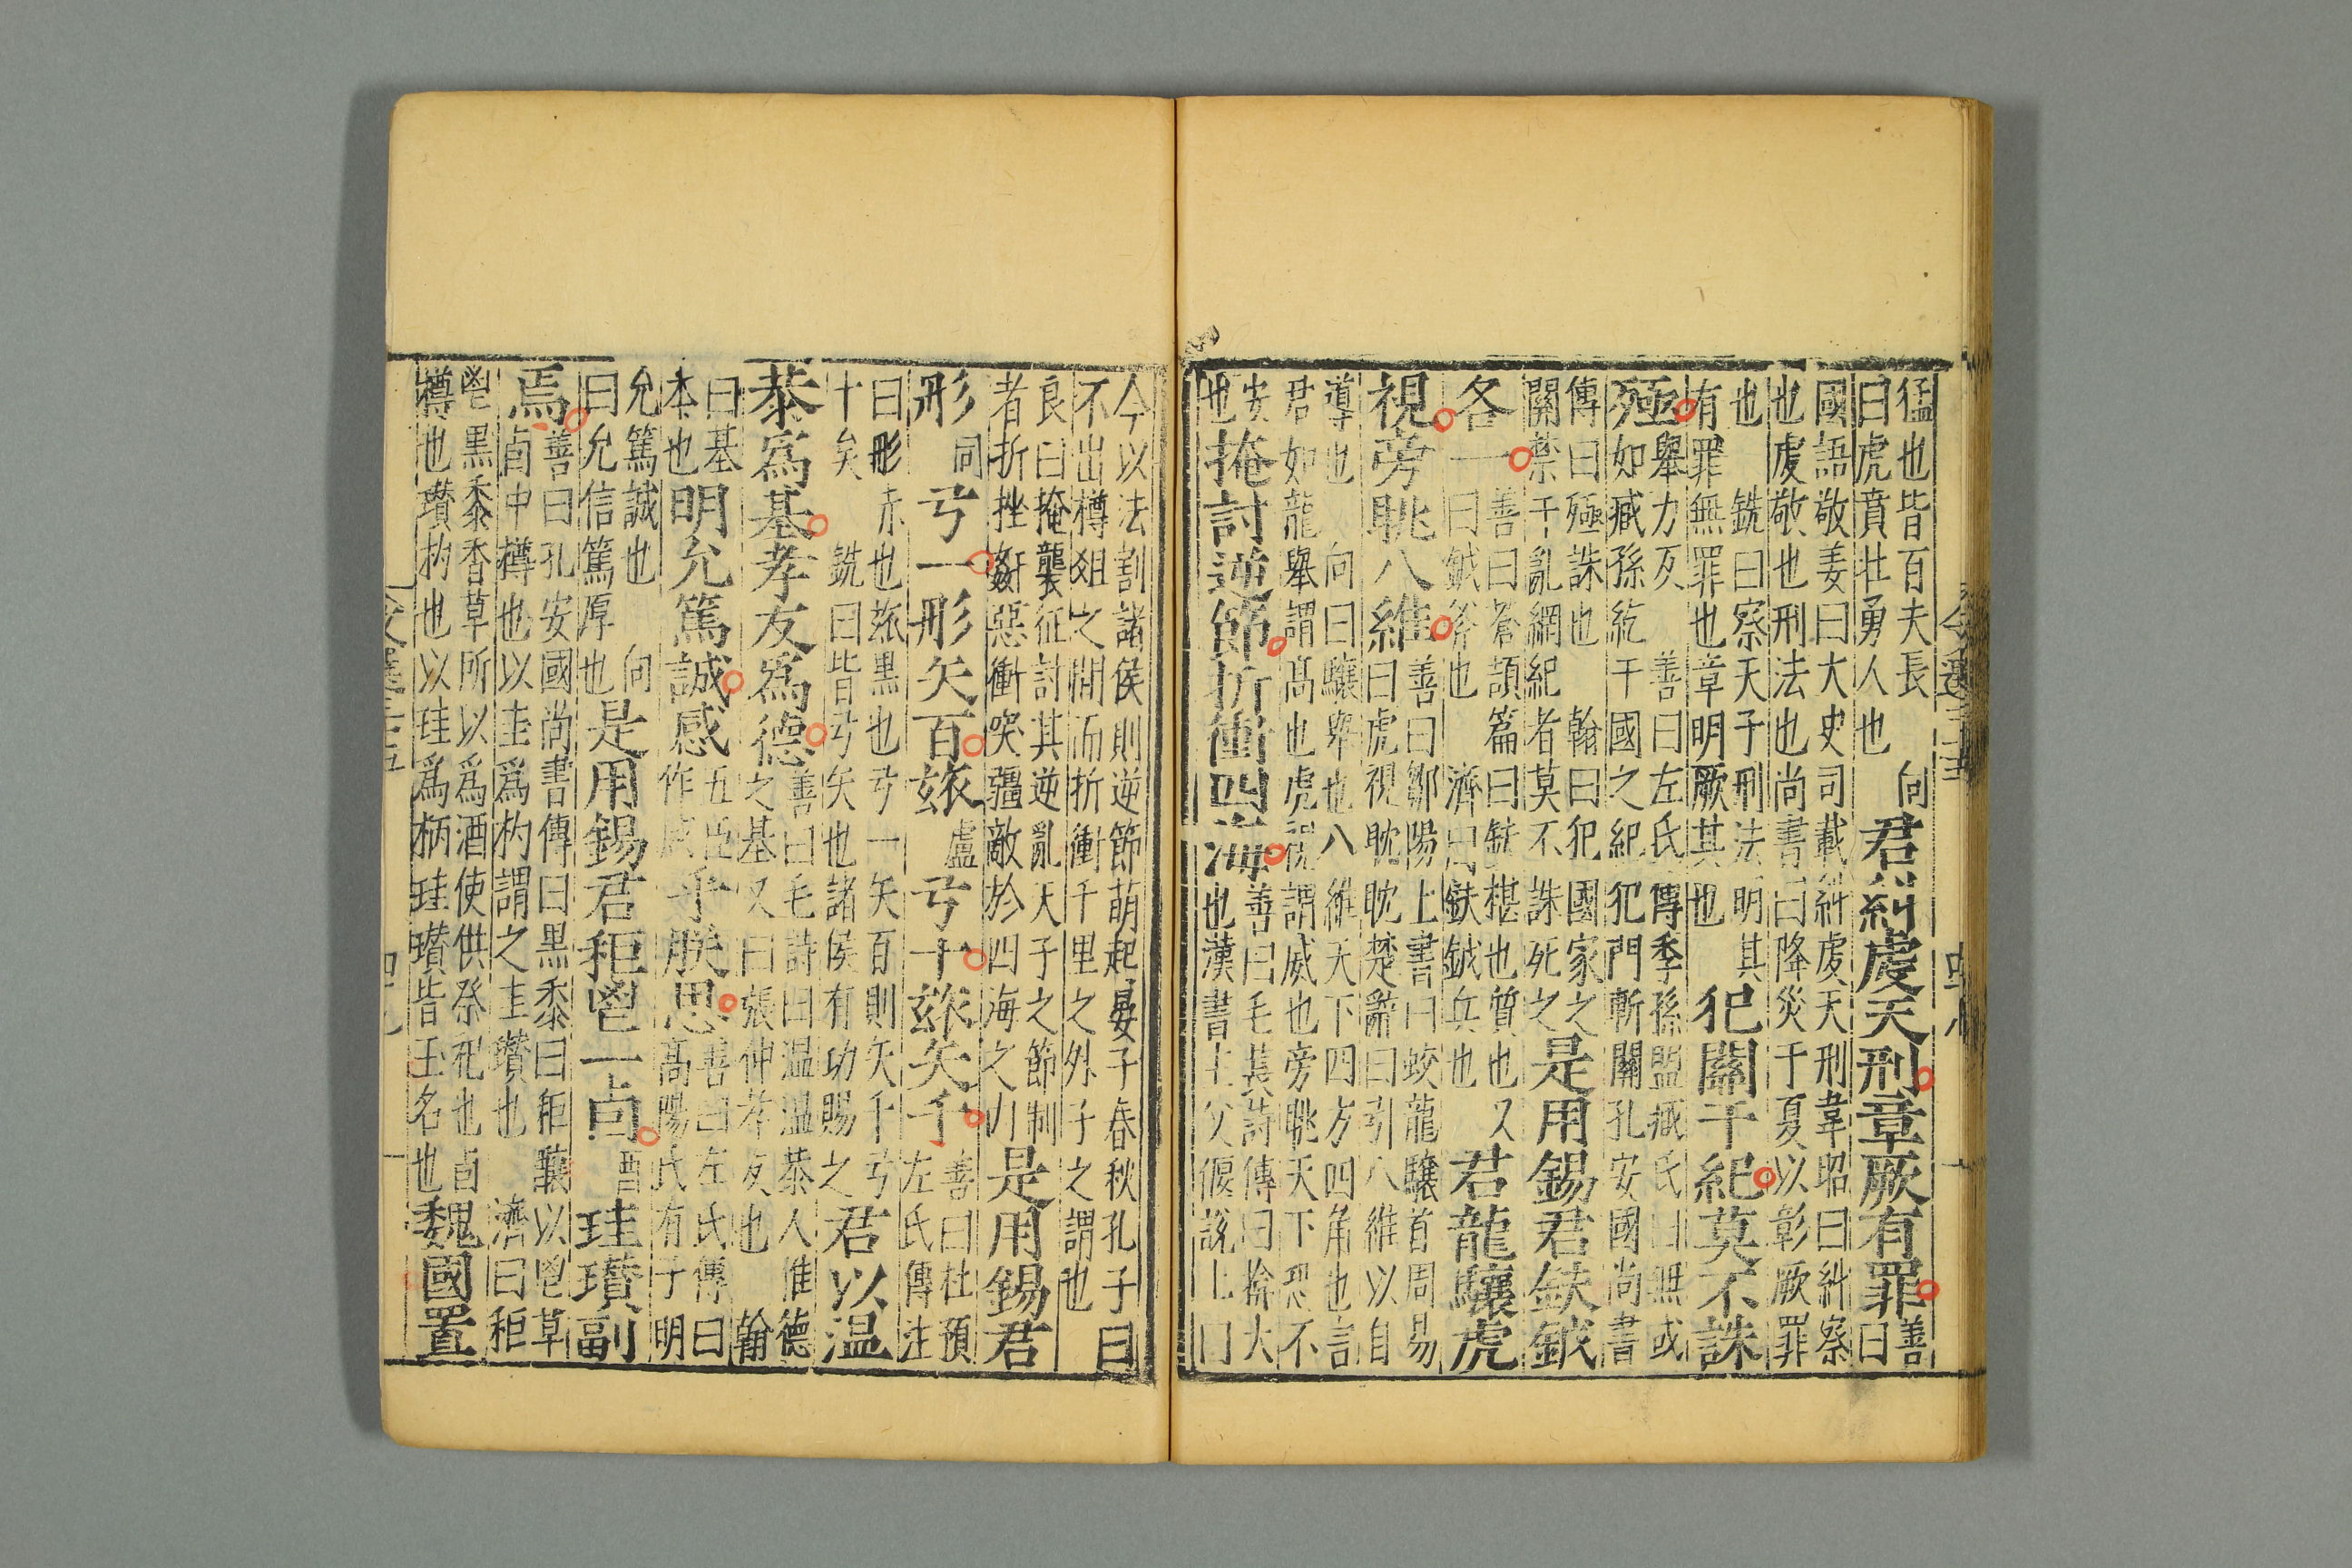 猛也皆百夫長 向
曰虎賁壮勇人也
君糾虔天刑章厥有罪
善
曰
國語敬姜曰大史司載糾虔天刑韋昭曰糾察
也虔敬也刑法也尚書曰降災于夏以彰厥罪
也 銑曰察天子刑法明其
有罪無罪也章明厥其也
犯關干紀莫不誅
殛
舉力反 善曰左氏傳季孫盟臧氏曰無或
如臧孫紇干國之紀犯門斬關孔安國尚書
傳曰殛誅也 翰曰犯國家之
關禁干亂網紀者莫不誅死之
是用錫君鈇鉞
各一
善曰蒼頡篇曰鈇椹也質也又
曰鉞斧也 濟曰鈇鉞兵也
君龍驤虎
視旁眺八維
善曰鄒陽上書曰蛟龍驤首周易
曰虎視眈眈楚辭曰引八維以自
導也 向曰驤舉也八維天下四方四角也言
君如龍舉謂髙也虎視謂威也旁眺天下恐不
安
也
掩討逆節折衝四海
善曰毛萇詩傳曰掩大
也漢書主父偃說上曰
今以法割諸侯則逆節萌起晏子春秋孔子曰
不出樽俎之閒而折衝千里之外子之謂也
良曰掩襲征討其逆亂天子之節制
者折挫姧惡衝突彊敵於四海之外
是用錫君
彤
同
弓一彤矢百玈
盧
弓十玈矢千
善曰杜預
左氏傳注
曰彤赤也玈黒也弓一矢百則矢千弓
十矣 銑曰皆弓矢也諸侯有功賜之
君以温
恭爲基孝友爲德
善曰毛詩曰温温恭人惟德
之基又曰張仲孝友也 翰
曰基
本也
明允篤誠感
五臣
作咸
乎朕思
善曰左氏傳曰
髙陽氏有子明
允篤誠也 向
曰允信篤厚也
是用錫君秬鬯一卣
酉
珪瓚副
焉
善曰孔安國尚書傳曰黒黍曰秬釀以鬯草
卣中樽也以圭爲杓謂之圭瓚也 濟曰秬
鬯黒黍香草所以爲酒使供祭祀也卣
樽也瓚杓也以珪爲柄珪瓚皆玉名也
魏國置